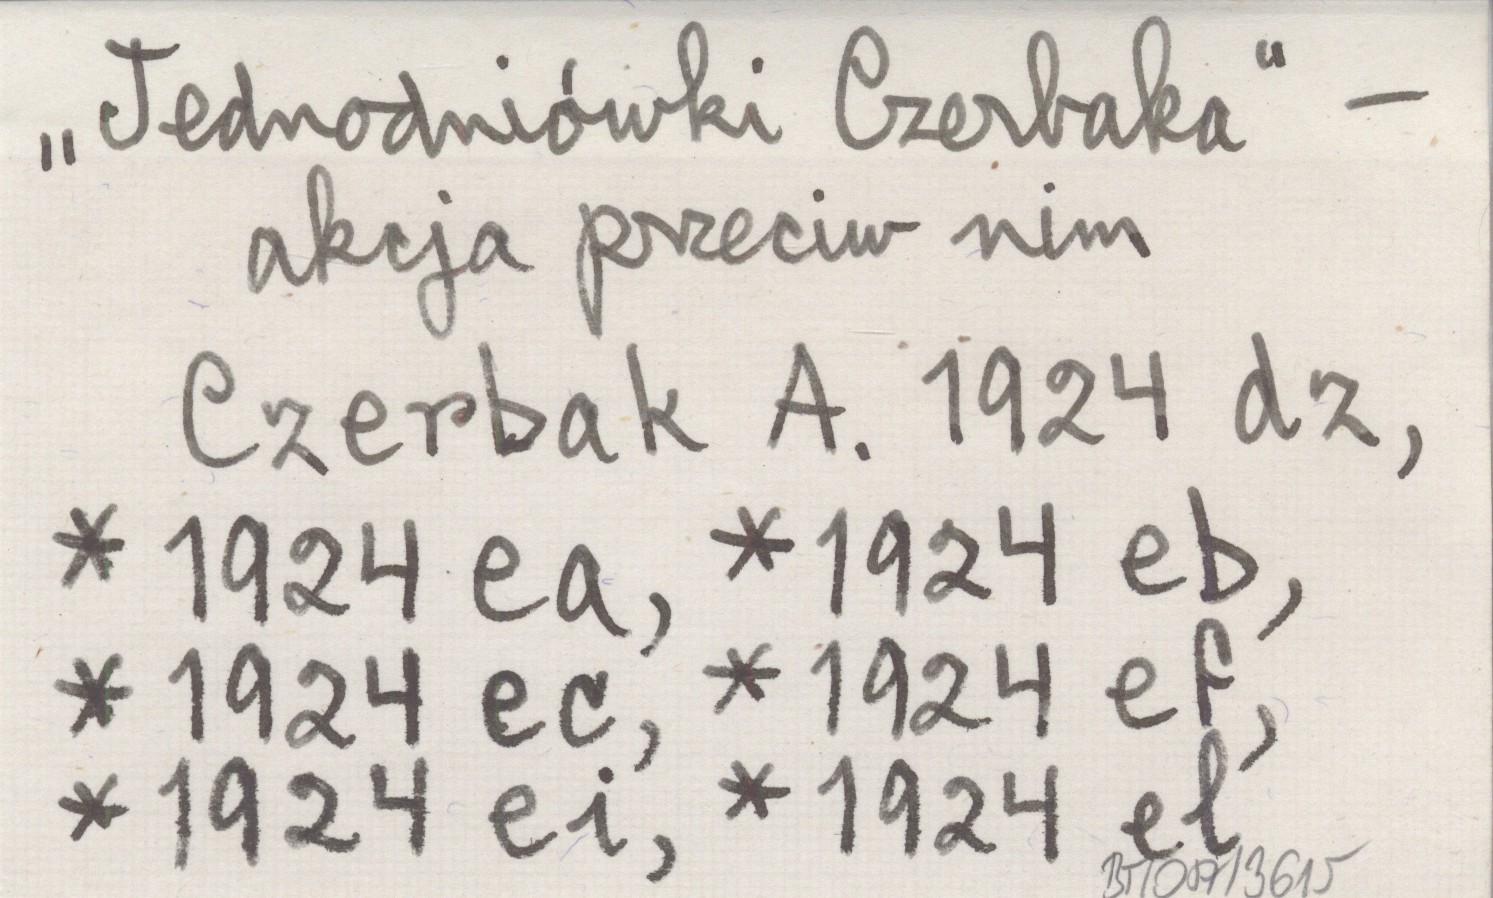 „Jednodniówki Czerbaka“ —
akcja przeciw nim
Czerbak A. 1924 dz,
* 1924 ea, * 1924 eb,
* 1924 ec, * 1924 ef,
* 1924 ei, * 1924 el